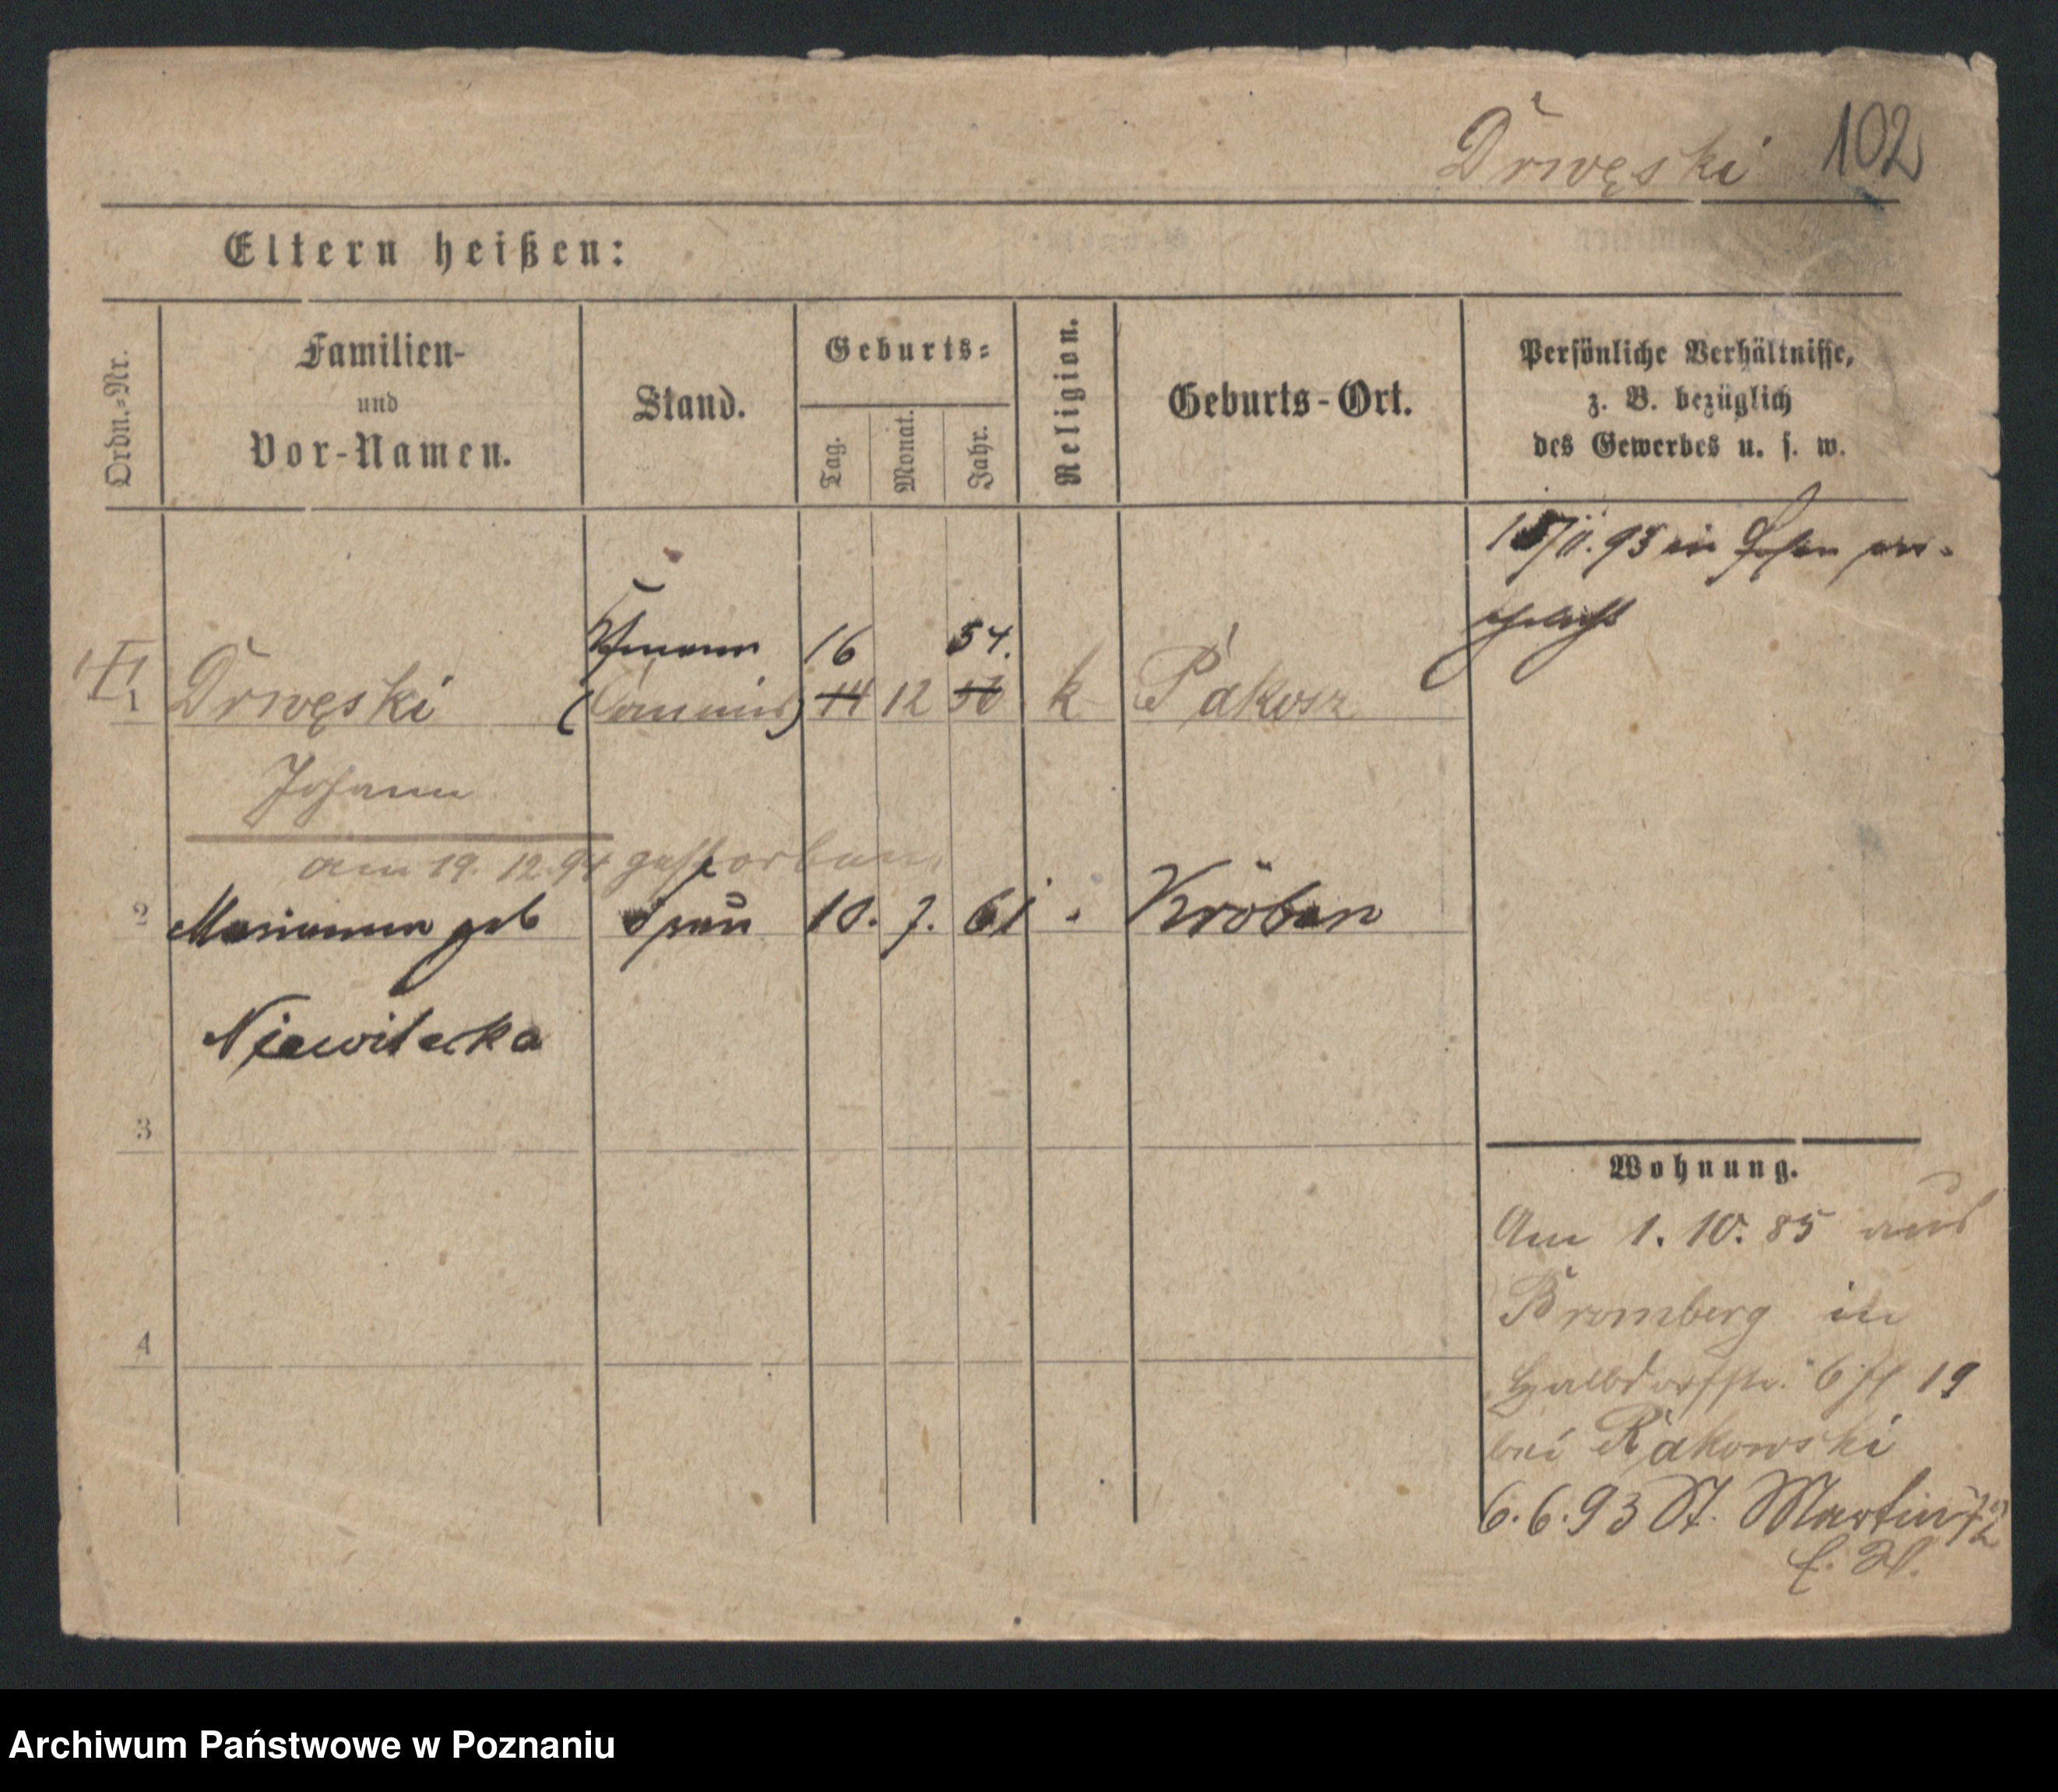 Drwęski 102
Eltern heißen:
Ordn.-Nr.
Familien-
und
Vor-Namen.
Stand.
Geburts-
Tag.
Monat.
Jahr.
Religion.
Geburts-Ort.
Persönliche Verhältnisse,
z. B. bezüglich
des Gewerbes u. s. w.
93 in
16 54.
1 Drwęski (Commis) 14 12 56 k Pakosz
Johann
am 19. 12. 94 gestorben
2 Marianna geb Frau 10. 7. 61 Kröben
Niewitecka
3
4
Wohnung.
Am 1. 10. 85 aus
Bromberg in
Halbdorfstr. 19
bei Rakowski
6. 6. 93 St. Martin
Archiwum Państwowe w Poznaniu